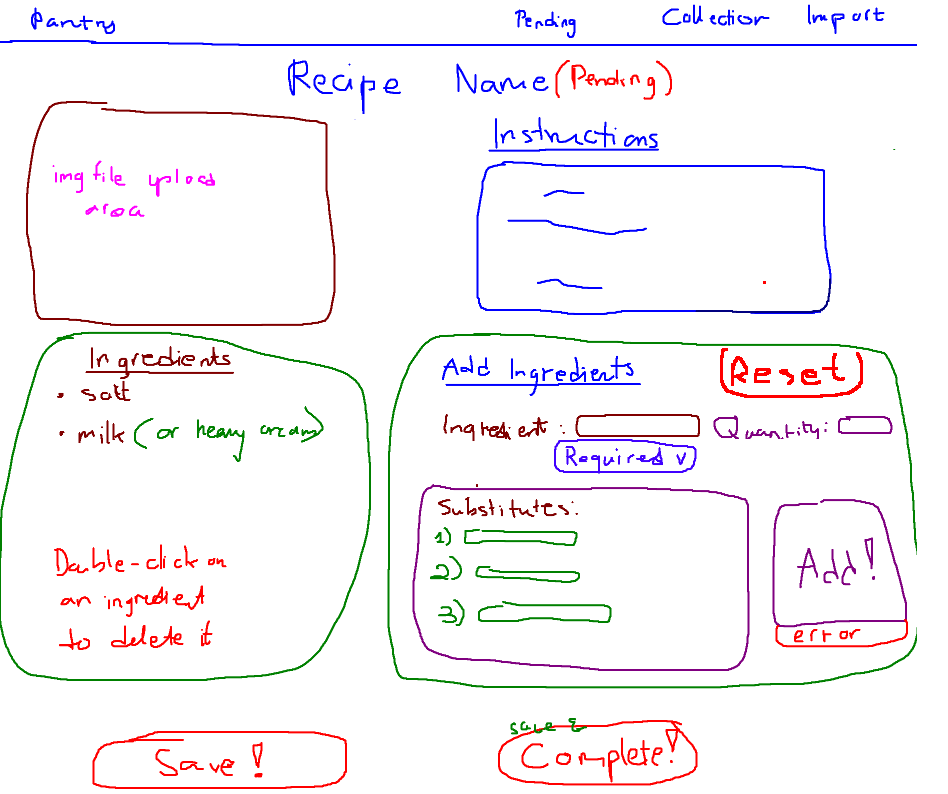 Pantry Pending Collection Import
Recipe Name (Pending)
img file upload
area
Instructions
Ingredients
• salt
• milk (or heavy cream)
Double-click on
an ingredient
to delete it
Add Ingredients
Reset
Ingredient: Quantity:
Required v
Substitutes:
1)
2)
3)
Add!
error
Save!
save &
Complete!